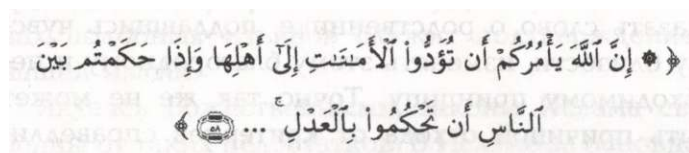 ﴿ ۞ إِنَّ ٱللَّهَ يَأْمُرُكُمْ أَن تُؤَدُّوا۟ ٱلْأَمَـٰنَـٰتِ إِلَىٰٓ أَهْلِهَا وَإِذَا حَكَمْتُم بَيْنَ
ٱلنَّاسِ أَن تَحْكُمُوا۟ بِٱلْعَدْلِ ۚ ... ۝٥٨ ﴾